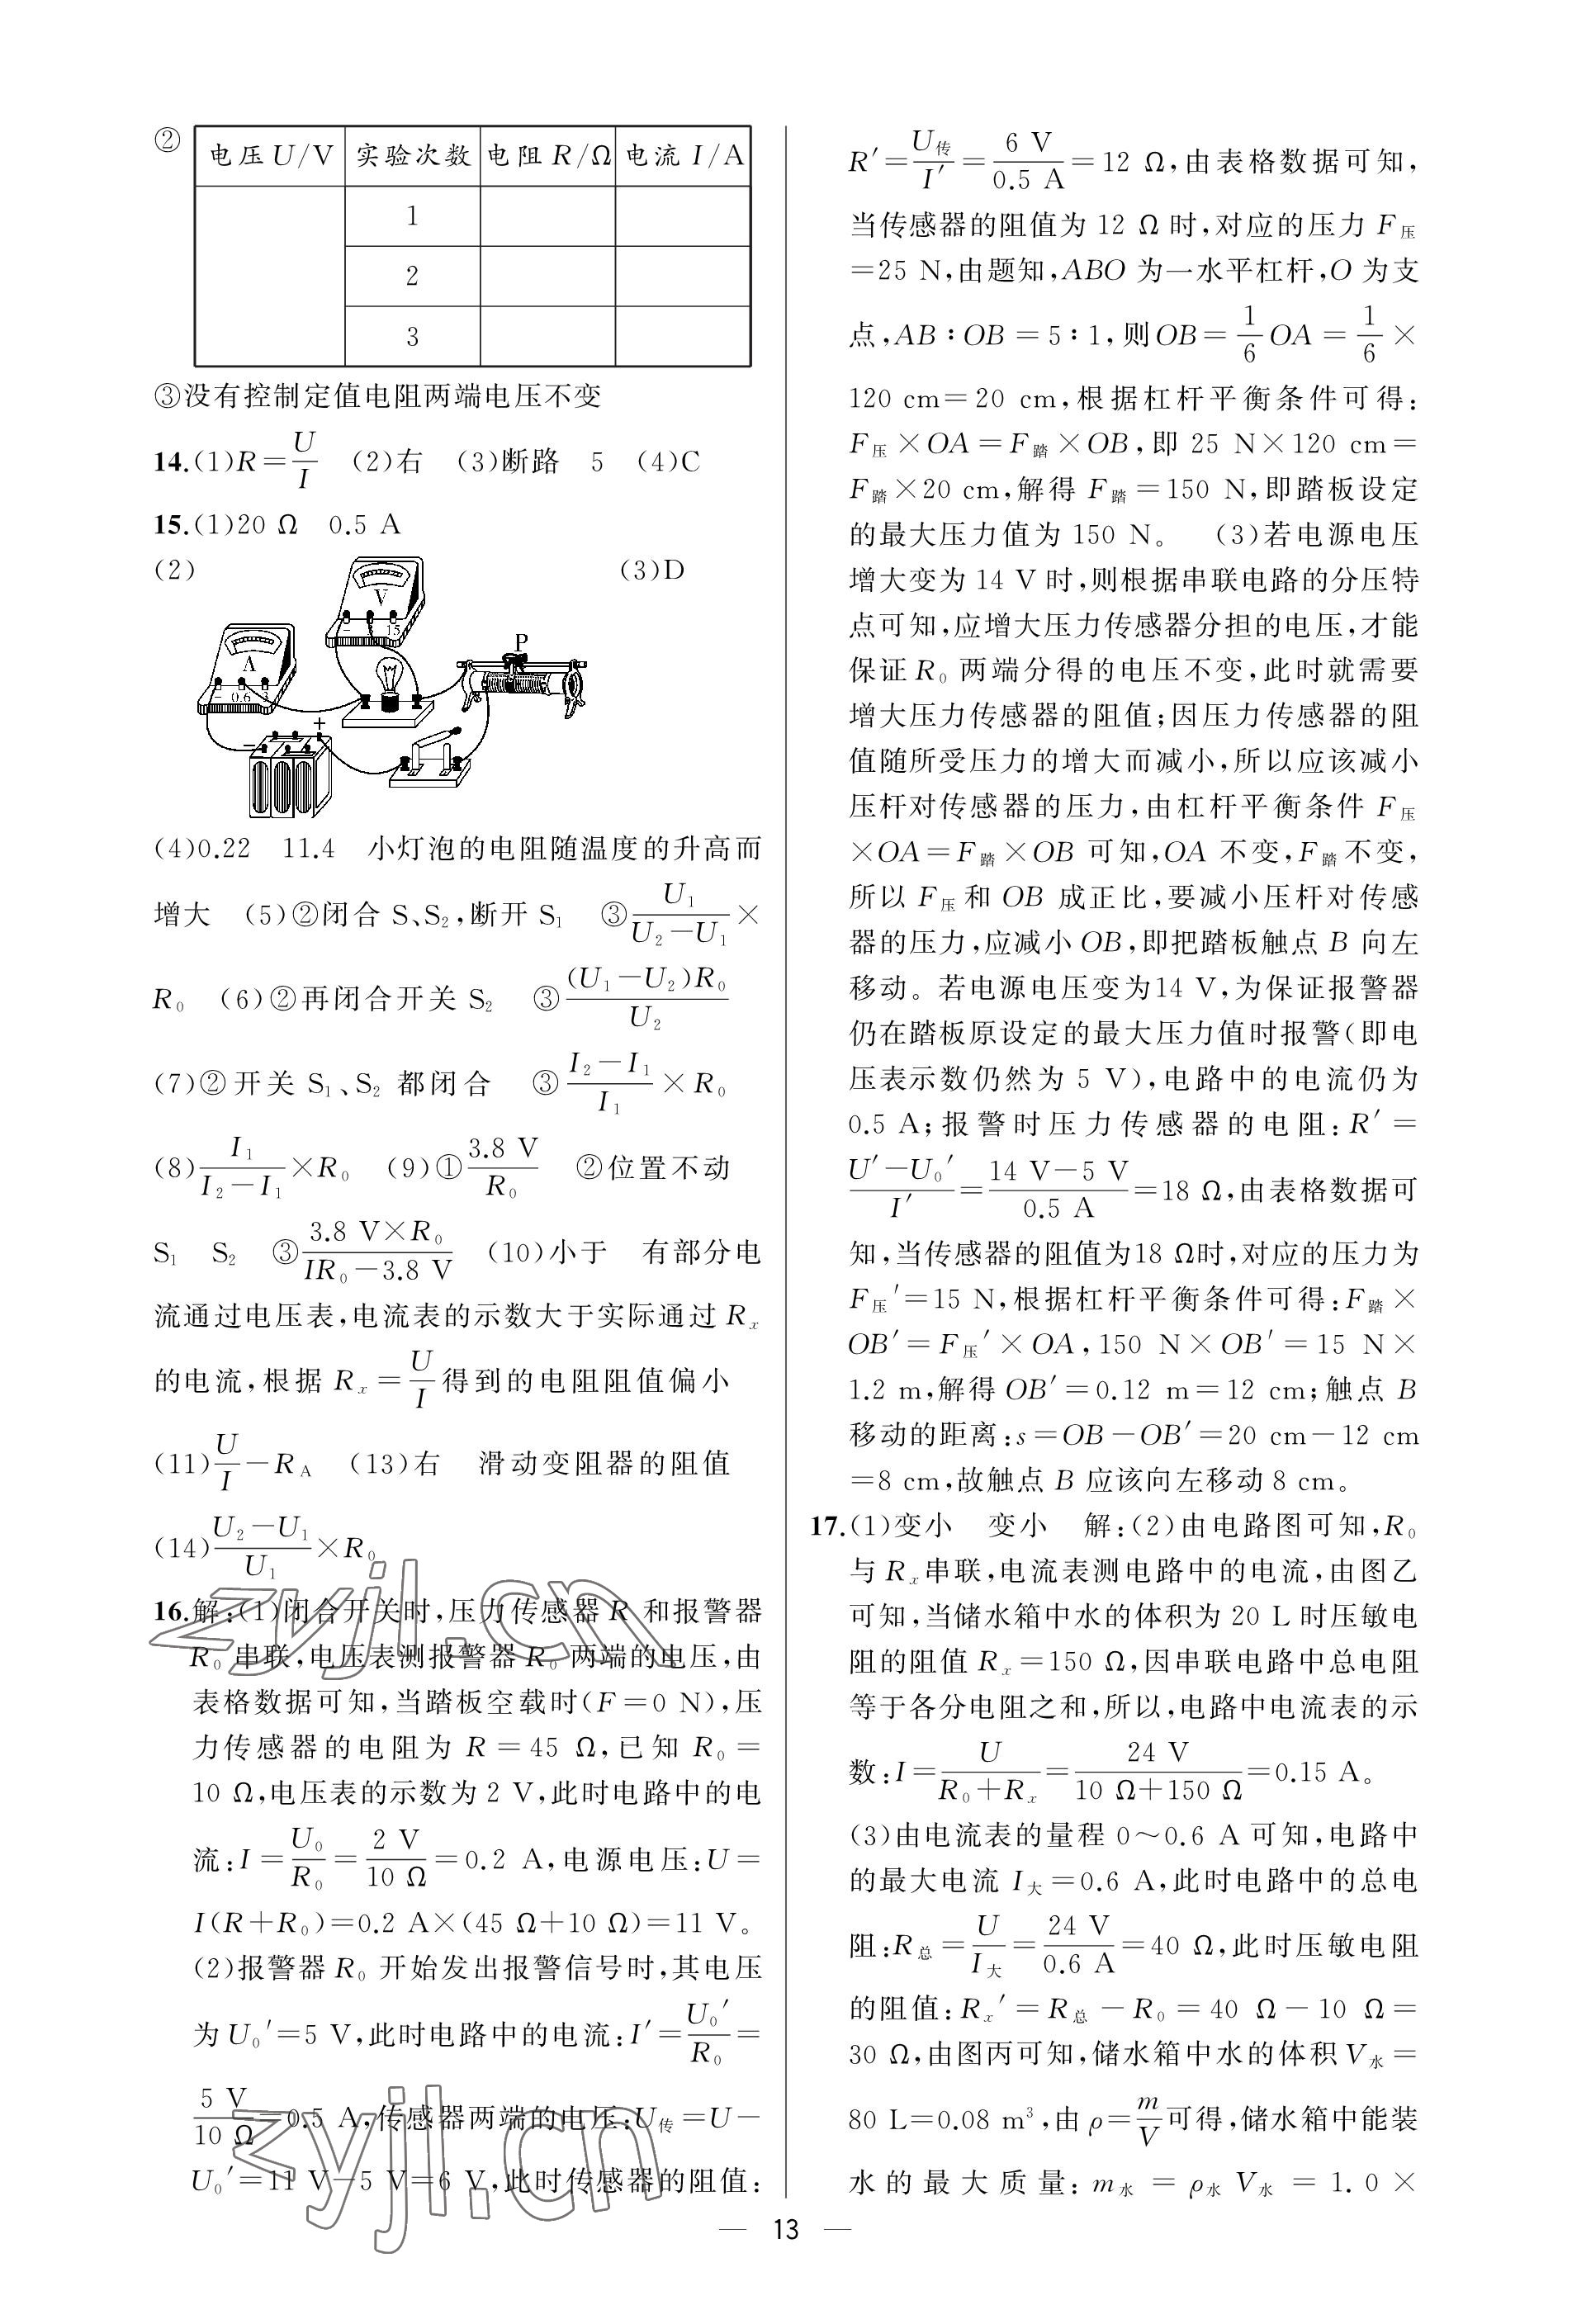 ②
电压 U/V 实验次数 电阻 R/Ω 电流 I/A
1
2
3
③没有控制定值电阻两端电压不变
14.(1)R=U/I (2)右 (3)断路 5 (4)C
15.(1)20 Ω 0.5 A
(2) (3)D
V
- 3 15
A
- 0.6 3
P
- +
(4)0.22 11.4 小灯泡的电阻随温度的升高而
增大 (5)②闭合 S、S₂,断开 S₁ ③U₁/(U₂-U₁)×
R₀ (6)②再闭合开关 S₂ ③(U₁-U₂)R₀/U₂
(7)②开关 S₁、S₂ 都闭合 ③(I₂-I₁)/I₁×R₀
(8)I₁/(I₂-I₁)×R₀ (9)①3.8 V/R₀ ②位置不动
S₁ S₂ ③3.8 V×R₀/(IR₀-3.8 V) (10)小于 有部分电
流通过电压表,电流表的示数大于实际通过 Rₓ
的电流,根据 Rₓ=U/I得到的电阻阻值偏小
(11)U/I-R_A (13)右 滑动变阻器的阻值
(14)(U₂-U₁)/U₁×R₀
16.解:(1)闭合开关时,压力传感器 R 和报警器
R₀ 串联,电压表测报警器 R₀ 两端的电压,由
表格数据可知,当踏板空载时(F=0 N),压
力传感器的电阻为 R=45 Ω,已知 R₀=
10 Ω,电压表的示数为 2 V,此时电路中的电
流:I=U₀/R₀=2 V/10 Ω=0.2 A,电源电压:U=
I(R+R₀)=0.2 A×(45 Ω+10 Ω)=11 V。
(2)报警器 R₀ 开始发出报警信号时,其电压
为 U₀′=5 V,此时电路中的电流:I′=U₀′/R₀=
5 V/10 Ω=0.5 A,传感器两端的电压:U传=U-
U₀′=11 V-5 V=6 V,此时传感器的阻值:
R′=U传/I′=6 V/0.5 A=12 Ω,由表格数据可知,
当传感器的阻值为 12 Ω 时,对应的压力 F压
=25 N,由题知,ABO 为一水平杠杆,O 为支
点,AB∶OB=5∶1,则OB=1/6 OA=1/6×
120 cm=20 cm,根据杠杆平衡条件可得:
F压×OA=F踏×OB,即 25 N×120 cm=
F踏×20 cm,解得 F踏=150 N,即踏板设定
的最大压力值为 150 N。 (3)若电源电压
增大变为 14 V 时,则根据串联电路的分压特
点可知,应增大压力传感器分担的电压,才能
保证 R₀ 两端分得的电压不变,此时就需要
增大压力传感器的阻值;因压力传感器的阻
值随所受压力的增大而减小,所以应该减小
压杆对传感器的压力,由杠杆平衡条件 F压
×OA=F踏×OB 可知,OA 不变,F踏不变,
所以 F压和 OB 成正比,要减小压杆对传感
器的压力,应减小 OB,即把踏板触点 B 向左
移动。若电源电压变为14 V,为保证报警器
仍在踏板原设定的最大压力值时报警(即电
压表示数仍然为 5 V),电路中的电流仍为
0.5 A;报警时压力传感器的电阻:R′=
(U′-U₀′)/I′=(14 V-5 V)/0.5 A=18 Ω,由表格数据可
知,当传感器的阻值为18 Ω时,对应的压力为
F压′=15 N,根据杠杆平衡条件可得:F踏×
OB′=F压′×OA,150 N×OB′=15 N×
1.2 m,解得 OB′=0.12 m=12 cm;触点 B
移动的距离:s=OB-OB′=20 cm-12 cm
=8 cm,故触点 B 应该向左移动 8 cm。
17.(1)变小 变小 解:(2)由电路图可知,R₀
与 Rₓ串联,电流表测电路中的电流,由图乙
可知,当储水箱中水的体积为 20 L 时压敏电
阻的阻值 Rₓ=150 Ω,因串联电路中总电阻
等于各分电阻之和,所以,电路中电流表的示
数:I=U/(R₀+Rₓ)=24 V/(10 Ω+150 Ω)=0.15 A。
(3)由电流表的量程 0～0.6 A 可知,电路中
的最大电流 I大=0.6 A,此时电路中的总电
阻:R总=U/I大=24 V/0.6 A=40 Ω,此时压敏电阻
的阻值:Rₓ′=R总-R₀=40 Ω-10 Ω=
30 Ω,由图丙可知,储水箱中水的体积 V水=
80 L=0.08 m³,由 ρ=m/V可得,储水箱中能装
水的最大质量:m水=ρ水V水=1.0×
— 13 —
zyjl.cn
zyjl.cn